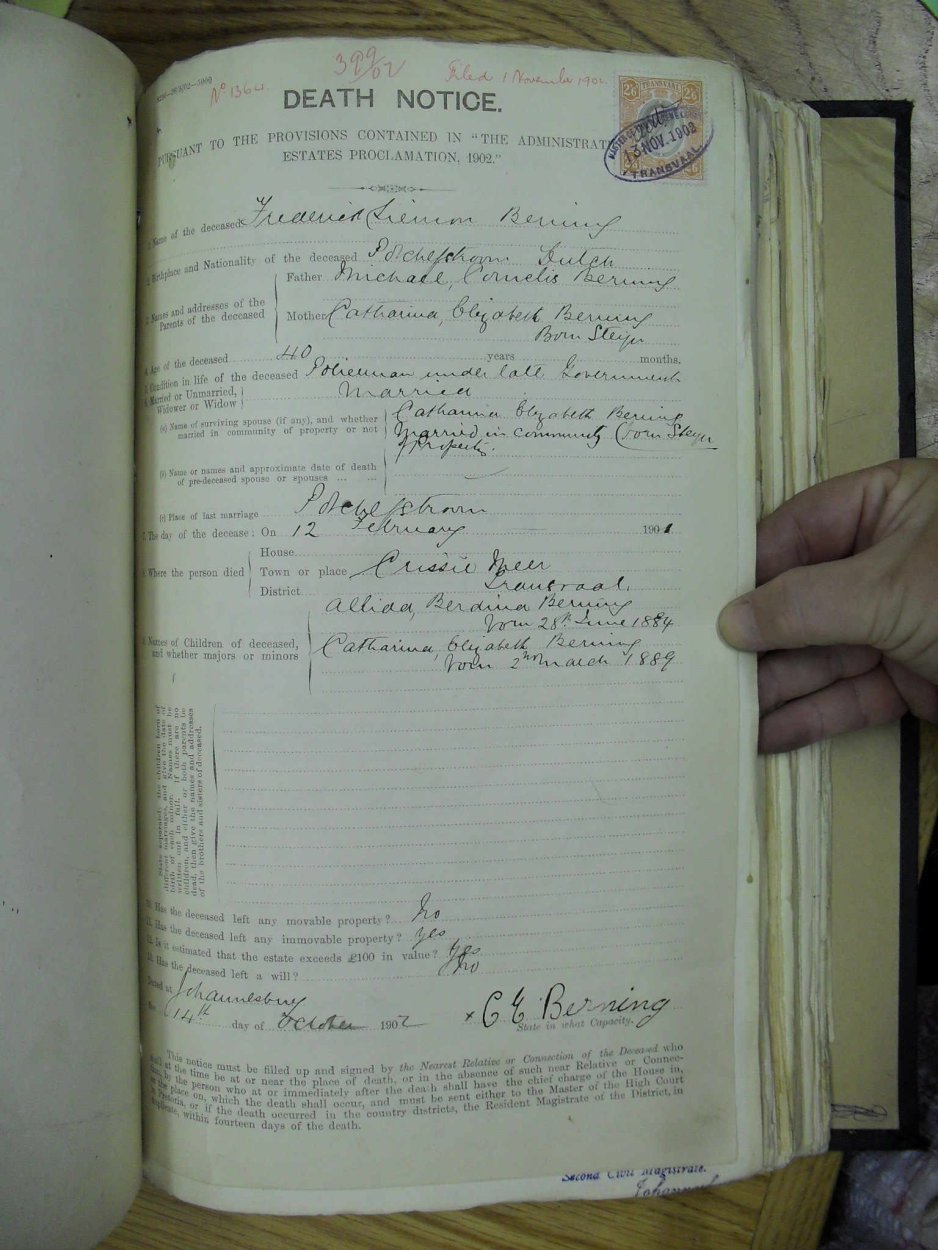 399/02
Filed 1 November 1902
No 1364
DEATH NOTICE.
PURSUANT TO THE PROVISIONS CONTAINED IN "THE ADMINISTRATI
ESTATES PROCLAMATION, 1902."
TRANSVAAL
2/6 2/6
13 NOV. 1902
TRANSVAAL
1. Name of the deceased Frederick Siemon Berning
2. Birthplace and Nationality of the deceased Potchefstroom Dutch
3. Names and addresses of the Parents of the deceased
Father Michael, Cornelis Berning
Mother Catharina, Elizabeth Berning
Born Steyn
4. Age of the deceased 40 years months.
5. Condition in life of the deceased Policeman under late Government
6. Married or Unmarried, Widower or Widow Married
(a) Name of surviving spouse (if any), and whether married in community of property or not
Catharina Elizabeth Berning
Married in community (born Steyn
of Property.
(b) Name or names and approximate date of death of pre-deceased spouse or spouses ... ...
(c) Place of last marriage Potchefstroom
7. The day of the decease: On 12 February 1901
8. Where the person died
House
Town or place Crissie Meer
District Transvaal.
9. Names of Children of deceased, and whether majors or minors
Allida, Berdina Berning
born 28th June 1884
Catharina Elizabeth Berning
born 2nd March 1889
State separately the children born of
different marriages, and give the date of
birth of each minor. Names must be
written out in full. If there are no
children, and either or both parents be
dead, then give the names and addresses
of the brothers and sisters of deceased.
10. Has the deceased left any movable property? No
11. Has the deceased left any immovable property? yes
12. Is it estimated that the estate exceeds £100 in value? Yes
13. Has the deceased left a will? No
Dated at Johannesburg
14th day of October 1902
x C E Berning
State in what Capacity.
This notice must be filled up and signed by the Nearest Relative or Connection of the Deceased who
shall at the time be at or near the place of death, or in the absence of such near Relative or Connec-
tion, by the person who at or immediately after the death shall have the chief charge of the House in,
or the place on, which the death shall occur, and must be sent either to the Master of the High Court
Pretoria, or if the death occurred in the country districts, the Resident Magistrate of the District, in
duplicate, within fourteen days of the death.
Second Civil Magistrate.